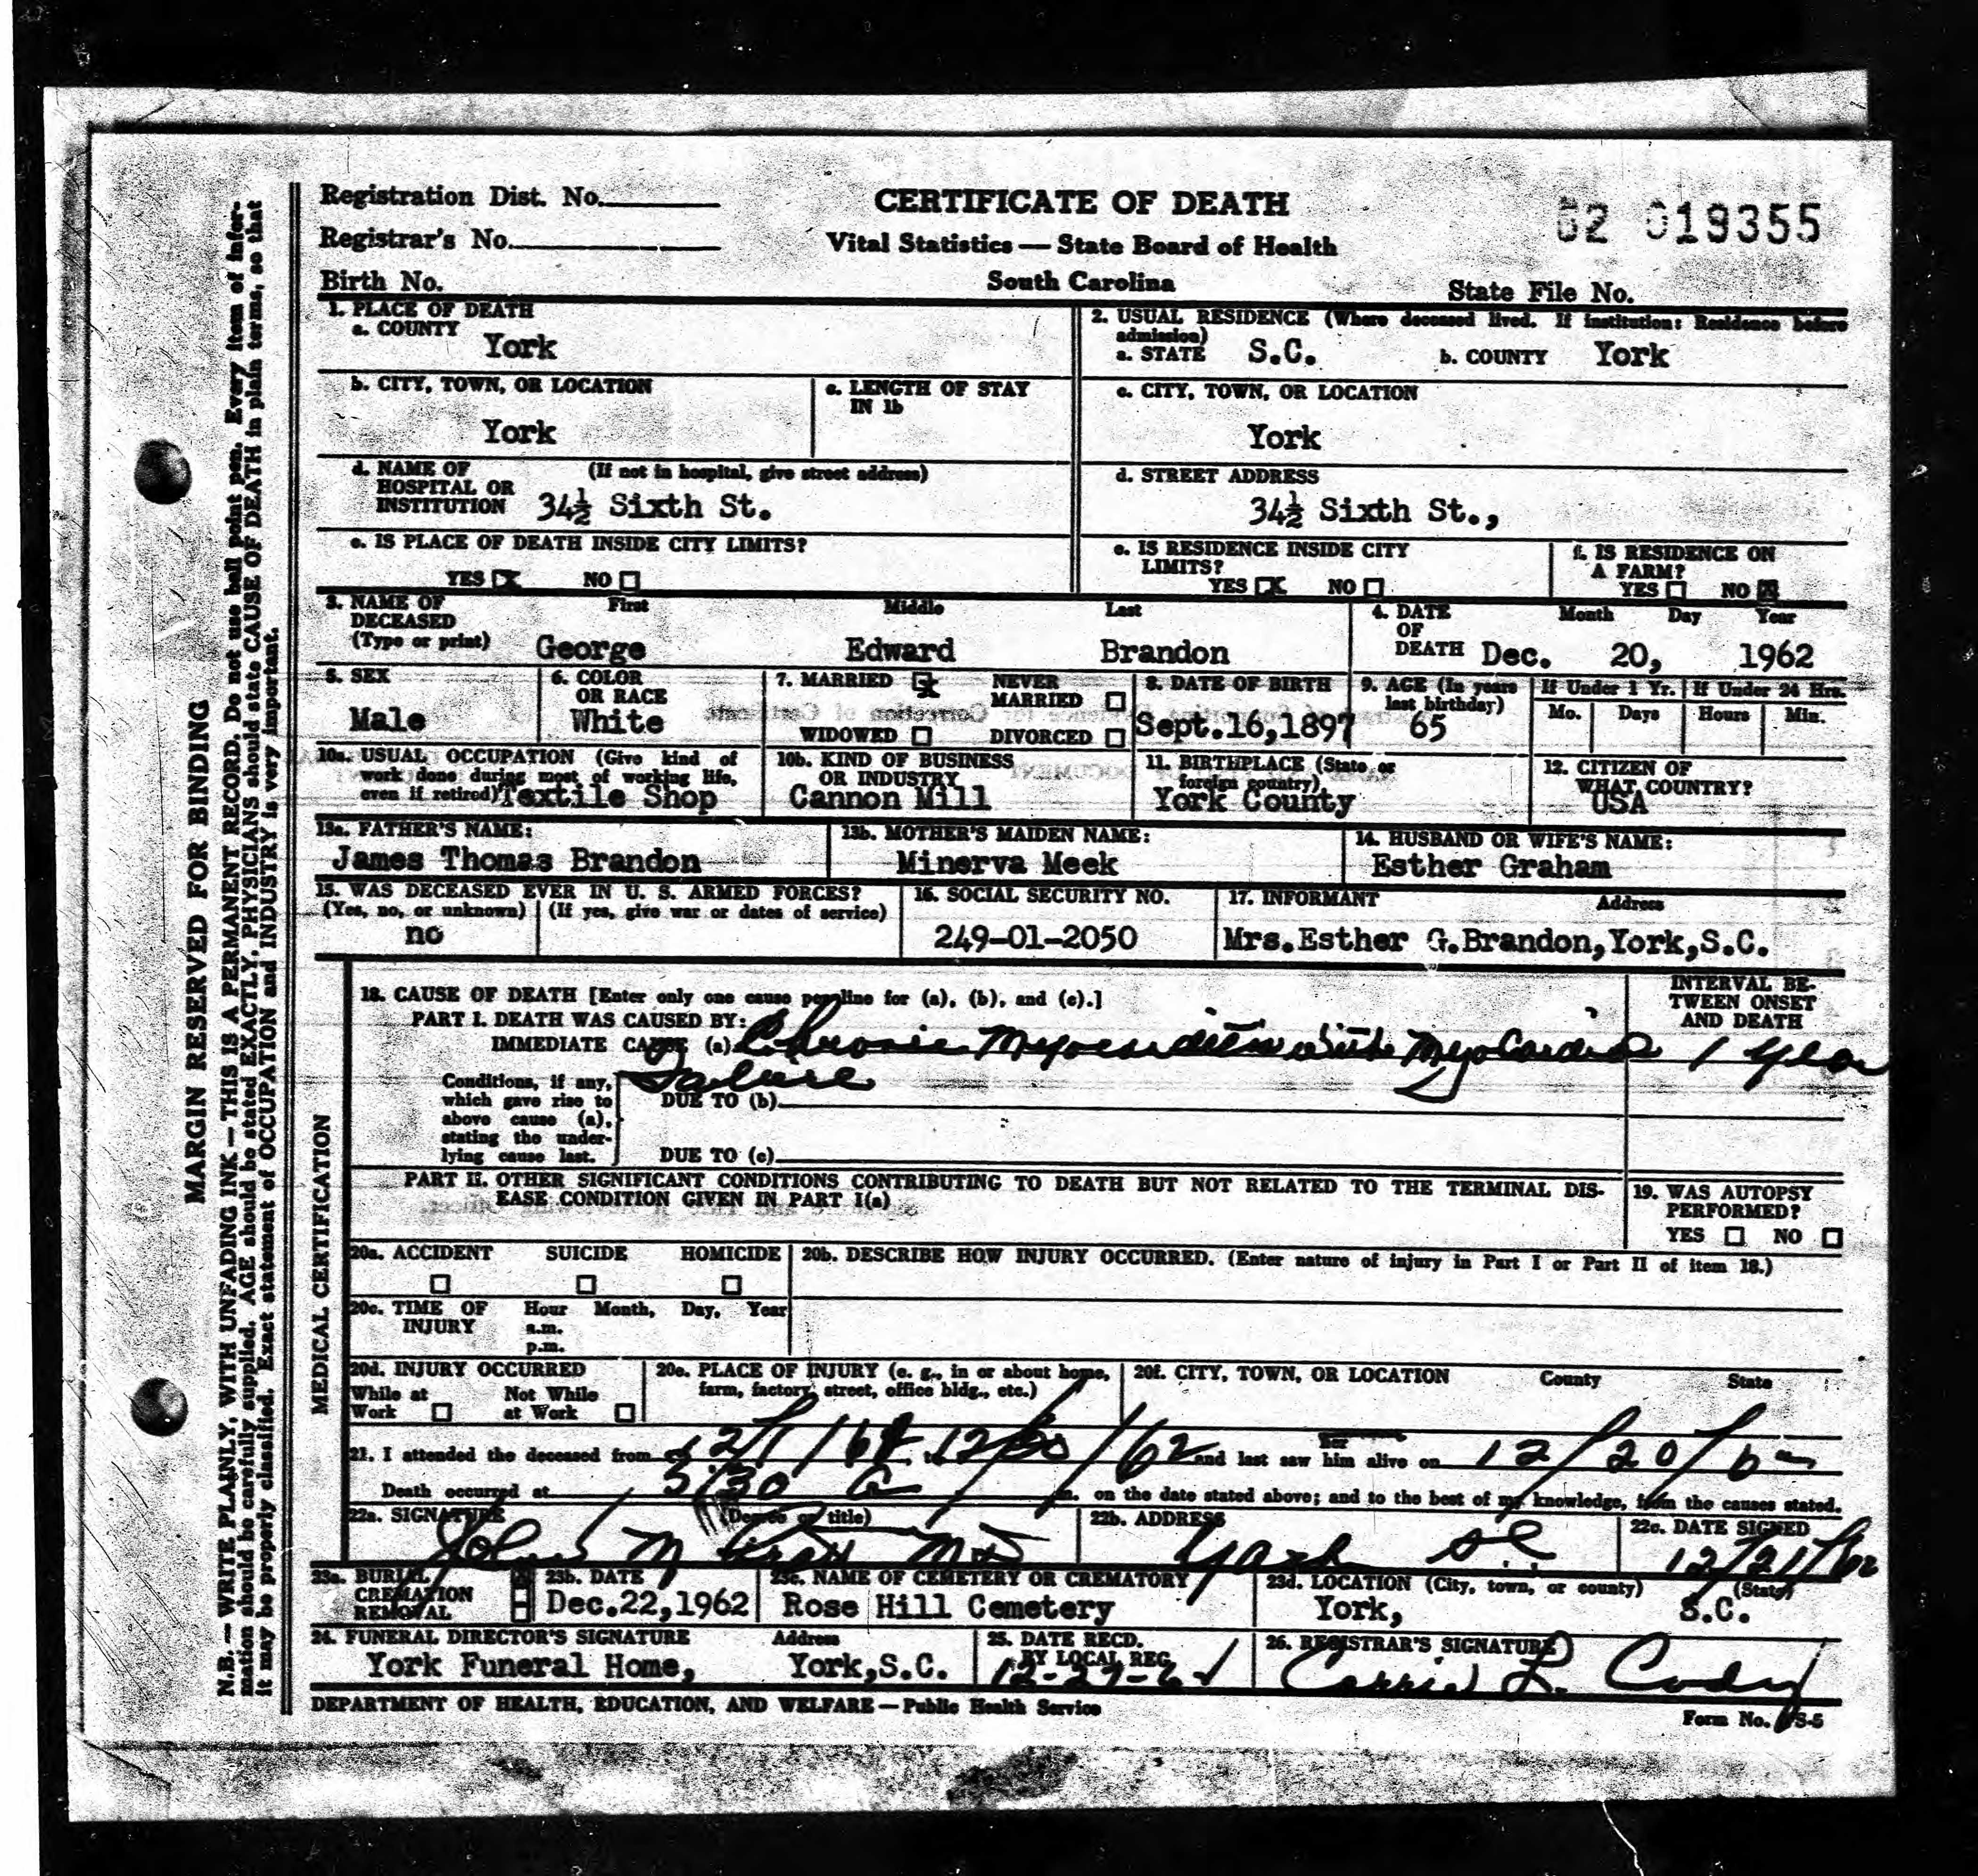 Registration Dist. No.
CERTIFICATE OF DEATH
62 019355
Registrar's No.
Vital Statistics — State Board of Health
Birth No.
South Carolina
State File No.
1. PLACE OF DEATH
a. COUNTY
York
2. USUAL RESIDENCE (Where deceased lived. If institution: Residence before
admission)
a. STATE S.C. b. COUNTY York
b. CITY, TOWN, OR LOCATION
York
c. LENGTH OF STAY
IN 1b
c. CITY, TOWN, OR LOCATION
York
d. NAME OF (If not in hospital, give street address)
HOSPITAL OR
INSTITUTION 34½ Sixth St.
d. STREET ADDRESS
34½ Sixth St.,
e. IS PLACE OF DEATH INSIDE CITY LIMITS?
YES X NO
e. IS RESIDENCE INSIDE CITY
LIMITS?
YES X NO
f. IS RESIDENCE ON
A FARM?
YES NO X
3. NAME OF
DECEASED
(Type or print)
First Middle Last
George Edward Brandon
4. DATE
OF
DEATH
Month Day Year
Dec. 20, 1962
5. SEX
Male
6. COLOR
OR RACE
White
7. MARRIED X NEVER
MARRIED
WIDOWED DIVORCED
8. DATE OF BIRTH
Sept.16,1897
9. AGE (In years
last birthday)
65
If Under 1 Yr.
Mo. Days
If Under 24 Hrs.
Hours Min.
10a. USUAL OCCUPATION (Give kind of
work done during most of working life,
even if retired) Textile Shop
10b. KIND OF BUSINESS
OR INDUSTRY
Cannon Mill
11. BIRTHPLACE (State or
foreign country)
York County
12. CITIZEN OF
WHAT COUNTRY?
USA
13a. FATHER'S NAME:
James Thomas Brandon
13b. MOTHER'S MAIDEN NAME:
Minerva Meek
14. HUSBAND OR WIFE'S NAME:
Esther Graham
15. WAS DECEASED EVER IN U. S. ARMED FORCES?
(Yes, no, or unknown) (If yes, give war or dates of service)
no
16. SOCIAL SECURITY NO.
249-01-2050
17. INFORMANT Address
Mrs.Esther G.Brandon,York,S.C.
MEDICAL CERTIFICATION
18. CAUSE OF DEATH [Enter only one cause per line for (a), (b), and (c).]
INTERVAL BE-
TWEEN ONSET
AND DEATH
PART I. DEATH WAS CAUSED BY:
IMMEDIATE CAUSE (a) Chronic Myocarditis with Myocardial 1 year
Failure
Conditions, if any,
which gave rise to
above cause (a),
stating the under-
lying cause last.
DUE TO (b)
DUE TO (c)
PART II. OTHER SIGNIFICANT CONDITIONS CONTRIBUTING TO DEATH BUT NOT RELATED TO THE TERMINAL DIS-
EASE CONDITION GIVEN IN PART I(a)
19. WAS AUTOPSY
PERFORMED?
YES NO
20a. ACCIDENT SUICIDE HOMICIDE
20b. DESCRIBE HOW INJURY OCCURRED. (Enter nature of injury in Part I or Part II of item 18.)
20c. TIME OF Hour Month, Day, Year
INJURY a.m.
p.m.
20d. INJURY OCCURRED
While at Not While
Work at Work
20e. PLACE OF INJURY (e. g., in or about home,
farm, factory, street, office bldg., etc.)
20f. CITY, TOWN, OR LOCATION County State
21. I attended the deceased from to 12/20/62 and last saw her him alive on 12/20/62
Death occurred at 5:30 a m. on the date stated above; and to the best of my knowledge, from the causes stated.
22a. SIGNATURE (Degree or title)
John M MD
22b. ADDRESS
York SC
22c. DATE SIGNED
12/21/62
23a. BURIAL X
CREMATION
REMOVAL
23b. DATE
Dec.22,1962
23c. NAME OF CEMETERY OR CREMATORY
Rose Hill Cemetery
23d. LOCATION (City, town, or county) (State)
York, S.C.
24. FUNERAL DIRECTOR'S SIGNATURE Address
York Funeral Home, York,S.C.
25. DATE RECD.
BY LOCAL REG.
26. REGISTRAR'S SIGNATURE
Carrie L. Cody
DEPARTMENT OF HEALTH, EDUCATION, AND WELFARE — Public Health Service
Form No. VS-5
MARGIN RESERVED FOR BINDING
N.B. — WRITE PLAINLY, WITH UNFADING INK — THIS IS A PERMANENT RECORD. Do not use ball point pen. Every item of infor-
mation should be carefully supplied. AGE should be stated EXACTLY. PHYSICIANS should state CAUSE OF DEATH in plain terms, so that
it may be properly classified. Exact statement of OCCUPATION and INDUSTRY is very important.